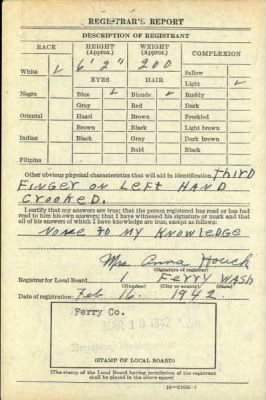 REGISTRAR'S REPORT
DESCRIPTION OF REGISTRANT
RACE HEIGHT (Approx.) WEIGHT (Approx.) COMPLEXION
6' 2" 200 Sallow
White ✓ EYES HAIR Light ✓
Negro Blue ✓ Blonde ✓ Ruddy
Gray Red Dark
Oriental Hazel Brown Freckled
Brown Black Light brown
Indian Black Gray Dark brown
Bald Black
Filipino
Other obvious physical characteristics that will aid in identification Third
Finger on Left Hand
Crooked.
I certify that my answers are true; that the person registered has read or has had
read to him his own answers; that I have witnessed his signature or mark and that
all of his answers of which I have knowledge are true, except as follows:
None to my Knowledge
Mrs Anna Houck
(Signature of registrar)
Registrar for Local Board 1 Ferry Wash
(Number) (City or county) (State)
Date of registration Feb 16. 1942
Ferry Co.
(STAMP OF LOCAL BOARD)
(The stamp of the Local Board having jurisdiction of the registrant
shall be placed in the above space)